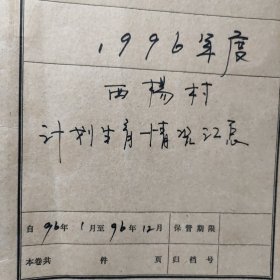 1996年度
西楊村
计划生育情况汇总
自96年1月至96年12月 保管期限
本卷共 件 页 归档号